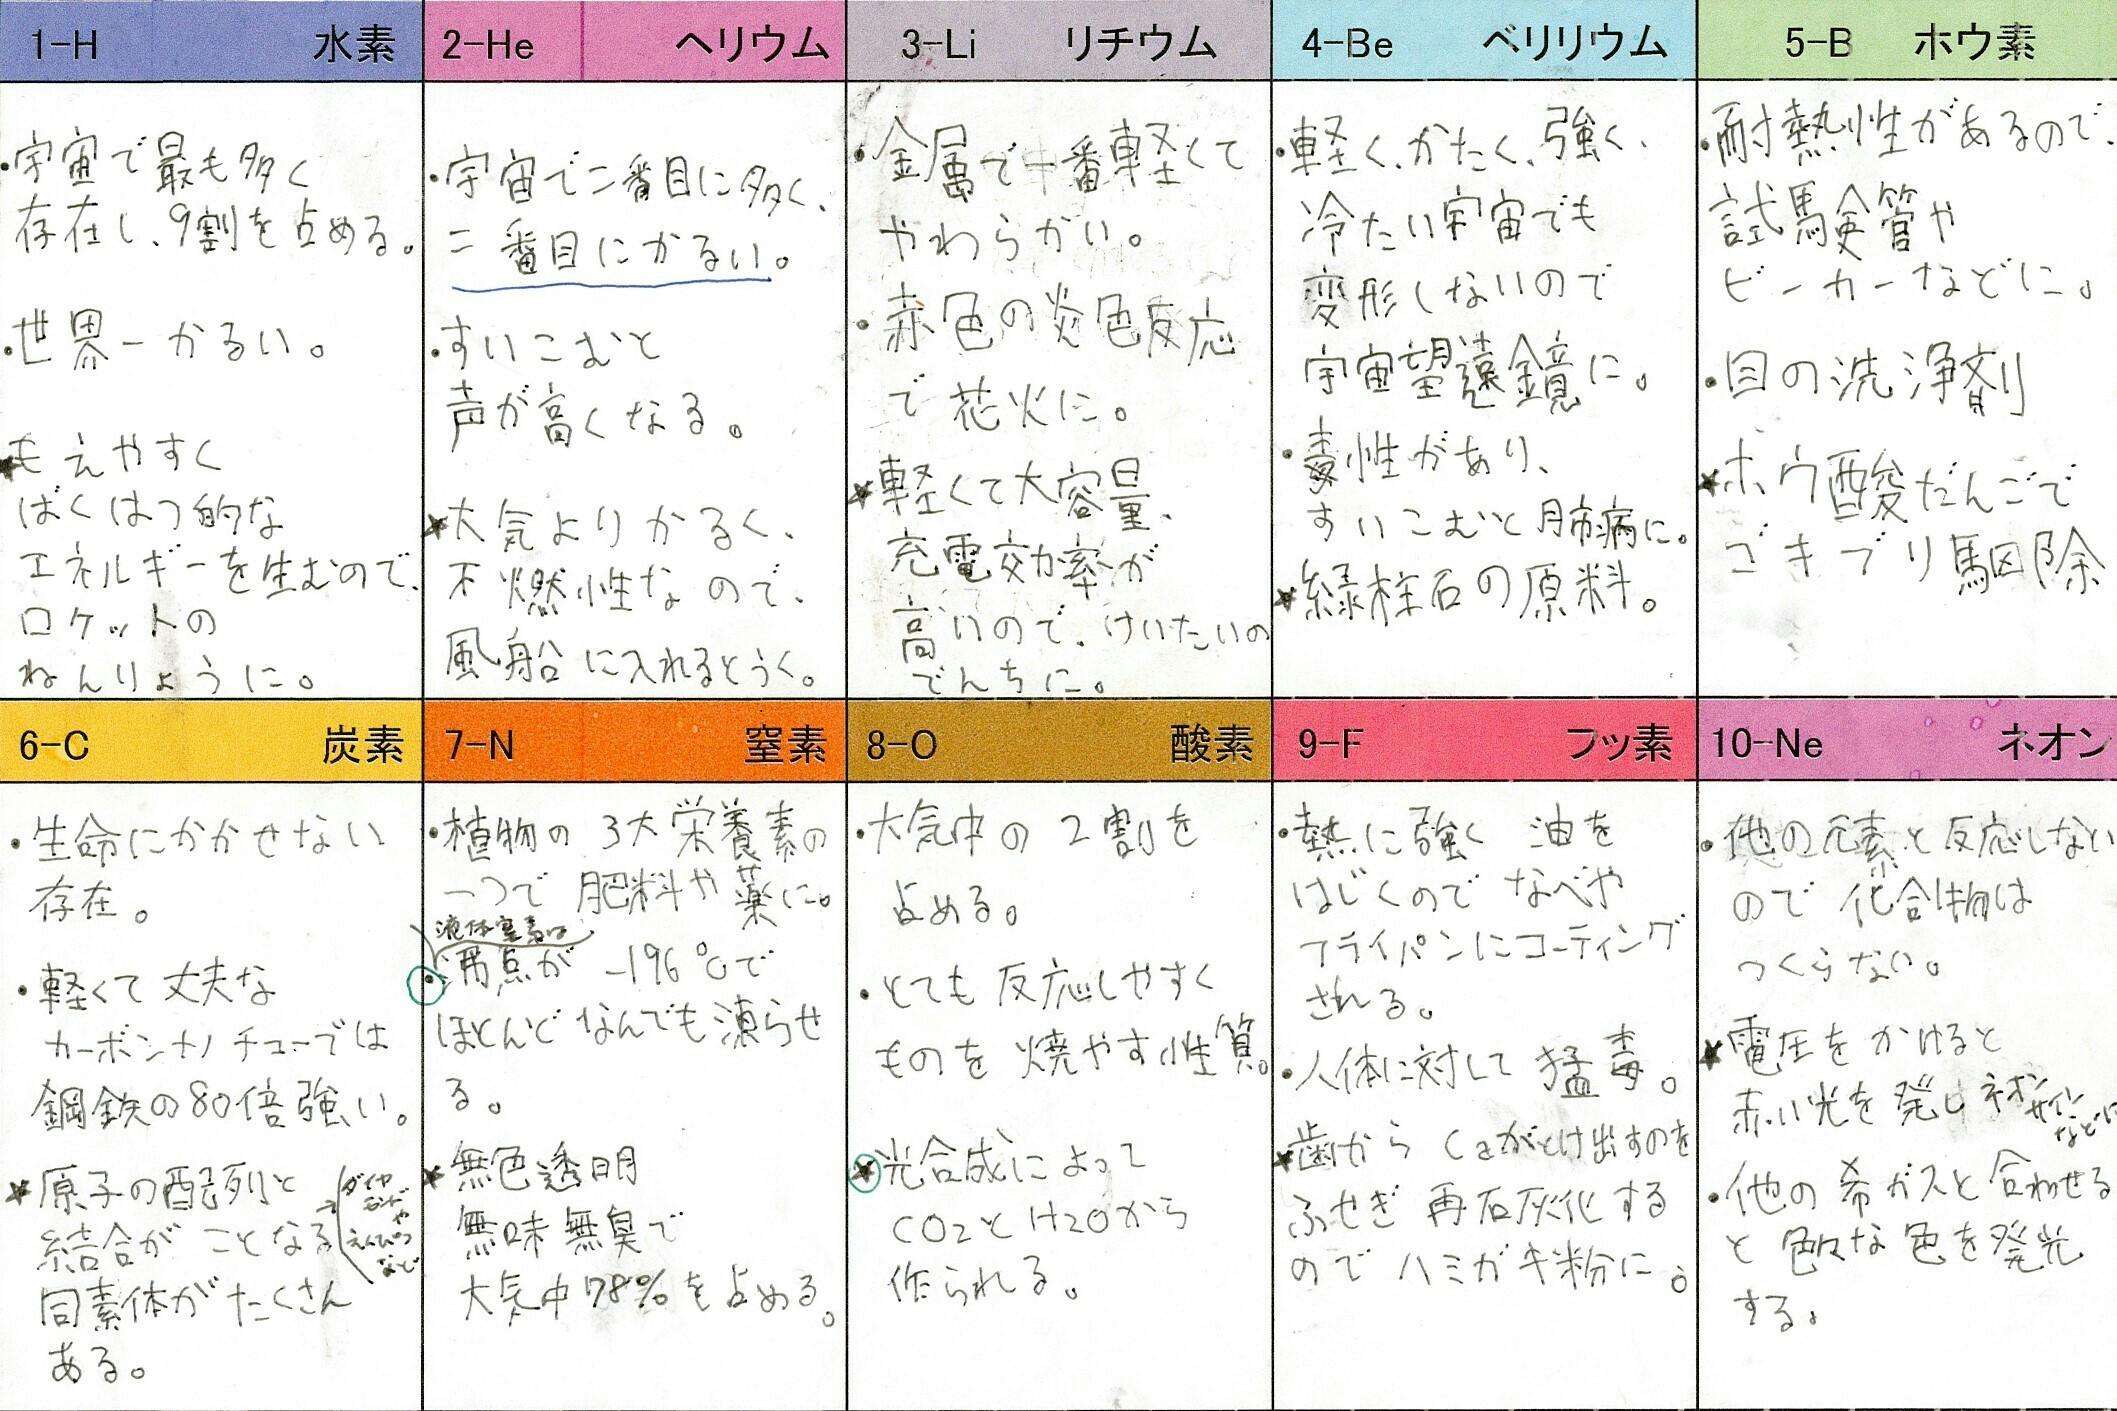 1-H 水素
・宇宙で最も多く
存在し、9割を占める。
・世界一かるい。
★もえやすく
ばくはつ的な
エネルギーを生むので、
ロケットの
ねんりょうに。
2-He ヘリウム
・宇宙で二番目に多く、
二番目にかるい。
・すいこむと
声が高くなる。
★大気よりかるく、
不燃性なので、
風船に入れるとうく。
3-Li リチウム
・金属で一番軽くて
やわらかい。
・赤色の炎色反応
で花火に。
★軽くて大容量、
充電効率が
高いので、けいたいの
でんちに。
4-Be ベリリウム
・軽く、かたく、強く、
冷たい宇宙でも
変形しないので
宇宙望遠鏡に。
・毒性があり、
すいこむと肺病に。
★緑柱石の原料。
5-B ホウ素
・耐熱性があるので、
試験管や
ビーカーなどに。
・目の洗浄剤
★ホウ酸だんごで
ゴキブリ駆除
6-C 炭素
・生命にかかせない
存在。
・軽くて丈夫な
カーボンナノチューブでは
鋼鉄の80倍強い。
★原子の配列と
結合がことなる
同素体がたくさん
ある。
ダイヤ
モンド
や
えんぴつ
など
7-N 窒素
・植物の3大栄養素の
一つで肥料や薬に。
液体窒素は
・沸点が-196℃で
ほとんどなんでも凍らせ
る。
★無色透明
無味無臭で
大気中78%を占める。
8-O 酸素
・大気中の2割を
占める。
・とても反応しやすく
ものを焼やす性質。
★光合成によって
CO2とH2Oから
作られる。
9-F フッ素
・熱に強く油を
はじくのでなべや
フライパンにコーティング
される。
・人体に対して猛毒。
★歯からCaがとけ出すのを
ふせぎ再石灰化する
のでハミガキ粉に。
10-Ne ネオン
・他の元素と反応しない
ので化合物は
つくらない。
★電圧をかけると
赤い光を発しネオン
サイン
などに
・他の希ガスと合わせる
と色々な色を発光
する。